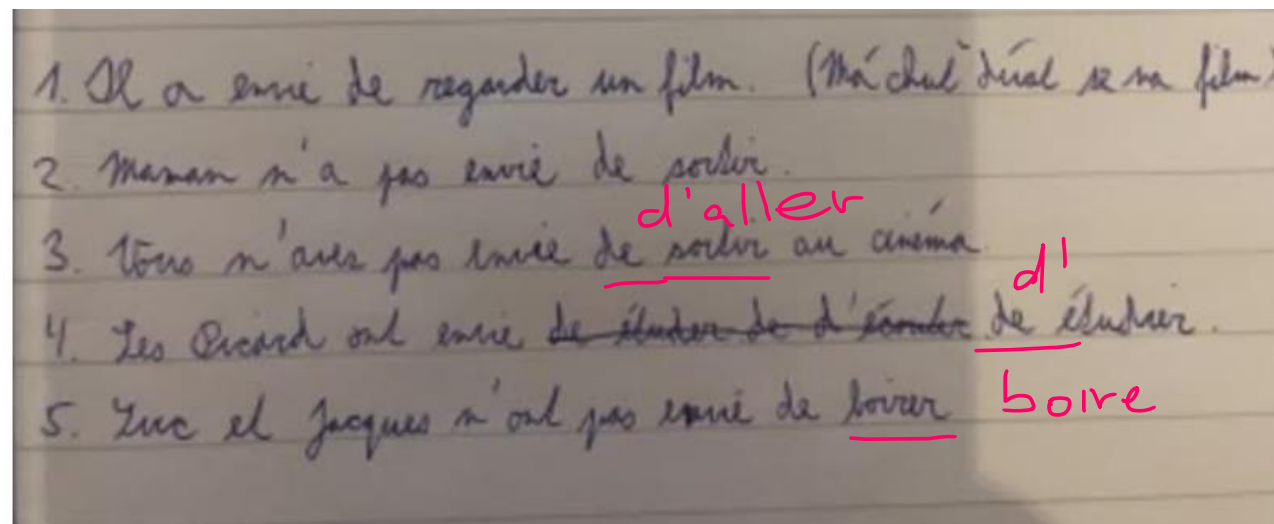 1. Il a envie de regarder un film. (Má chuť dívat se na film)
2. Maman n'a pas envie de sortir.
d'aller
3. Vous n'avez pas envie de sortir au cinéma.
d'
4. Les Picard ont envie de étudier.
5. Luc et Jacques n'ont pas envie de boirer boire